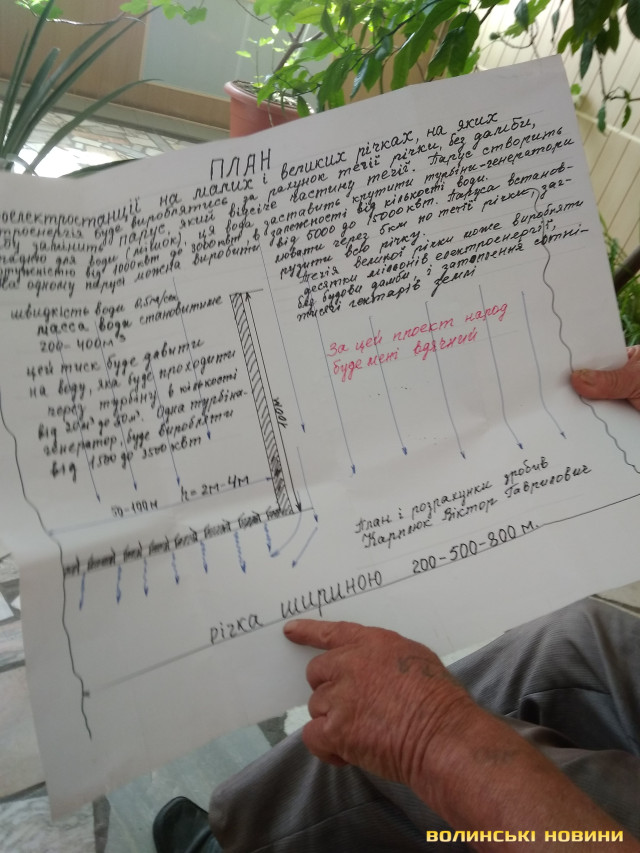 ПЛАН
оелектростанції на малих і великих річках, на яких
троенергія буде вироблятись за рахунок течії річки, без дамби,
бу замінить парус, який відсіче частину течії. Парус створить
для води (мішок), ця вода заставить крутити турбіни-генератори
від 1000 квт до 3000 квт в залежності від кількості води.
На одному парусі можна виробити від 6000 до 15000 квт. Паруса встанов-
лювати через 5км по течії річки, заг-
рузити всю річку.
Течія великої річки може виробляти
десятки міліонів електроенергії,
без будови дамби, і затоплення сотні-
тисяч гектарів землі
швидкість води 0,5м/сек
масса води становитиме
200-400м³
цей тиск буде давити
на воду, яка буде проходити
через турбіну в кількості
від 20м³ до 50м³. Одна турбіна-
генератор, буде виробляти
від 1500 до 3500 квт
За цей проект народ
буде мені вдячний
100м
50-100м h=2м-4м
План і розрахунки зробив
Карпюк Віктор Гаврилович
річка шириною 200-500-800 м.
ВОЛИНСЬКІ НОВИНИ